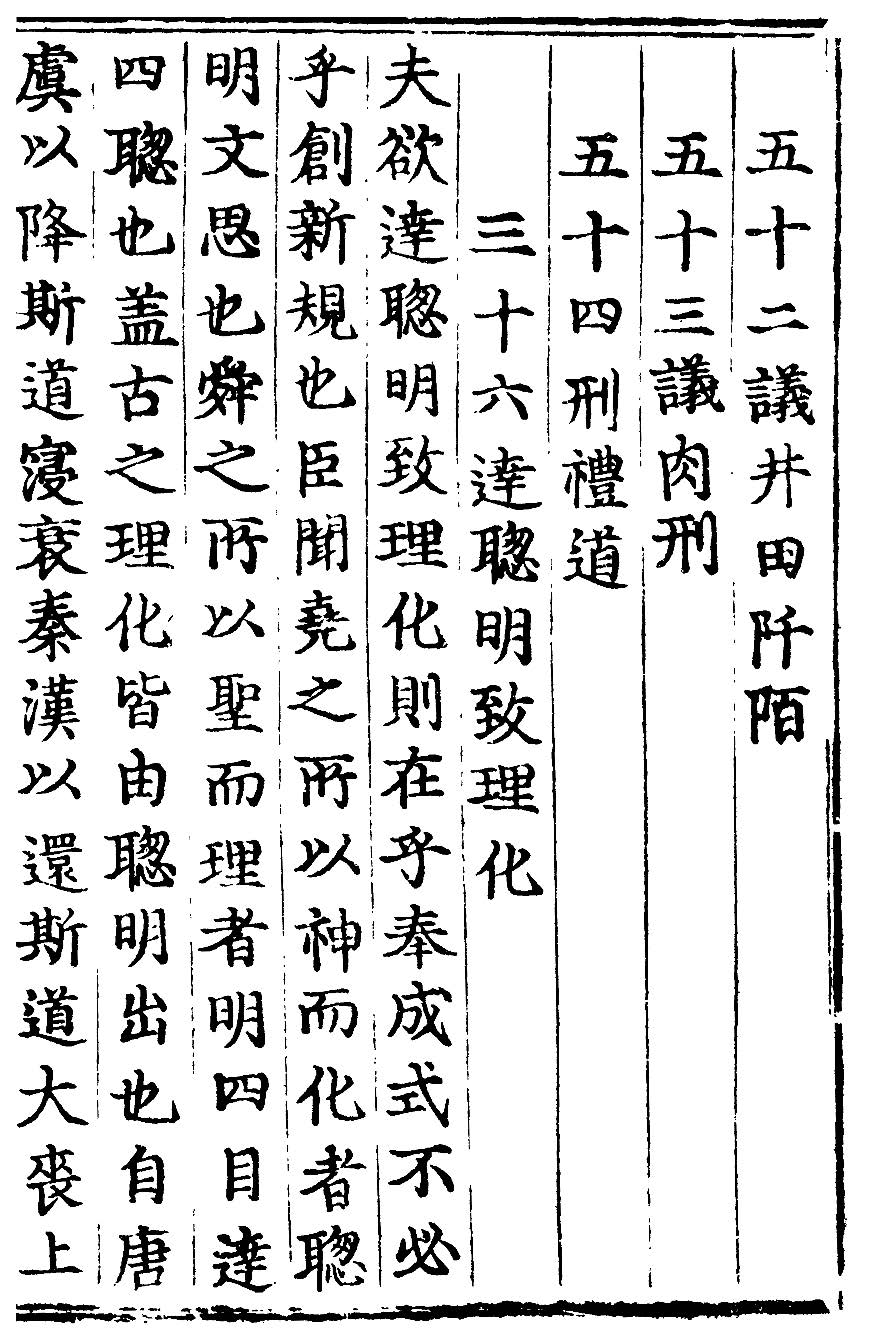 五十二議井田阡陌
五十三議肉刑
五十四刑禮道
三十六達聰明致理化
夫欲達聰明致理化則在乎奉成式不必
乎創新規也臣聞堯之所以神而化者聰
明文思也舜之所以聖而理者明四目達
四聰也盖古之理化皆由聰明出也自唐
虞以降斯道寖衰秦漢以還斯道大喪上